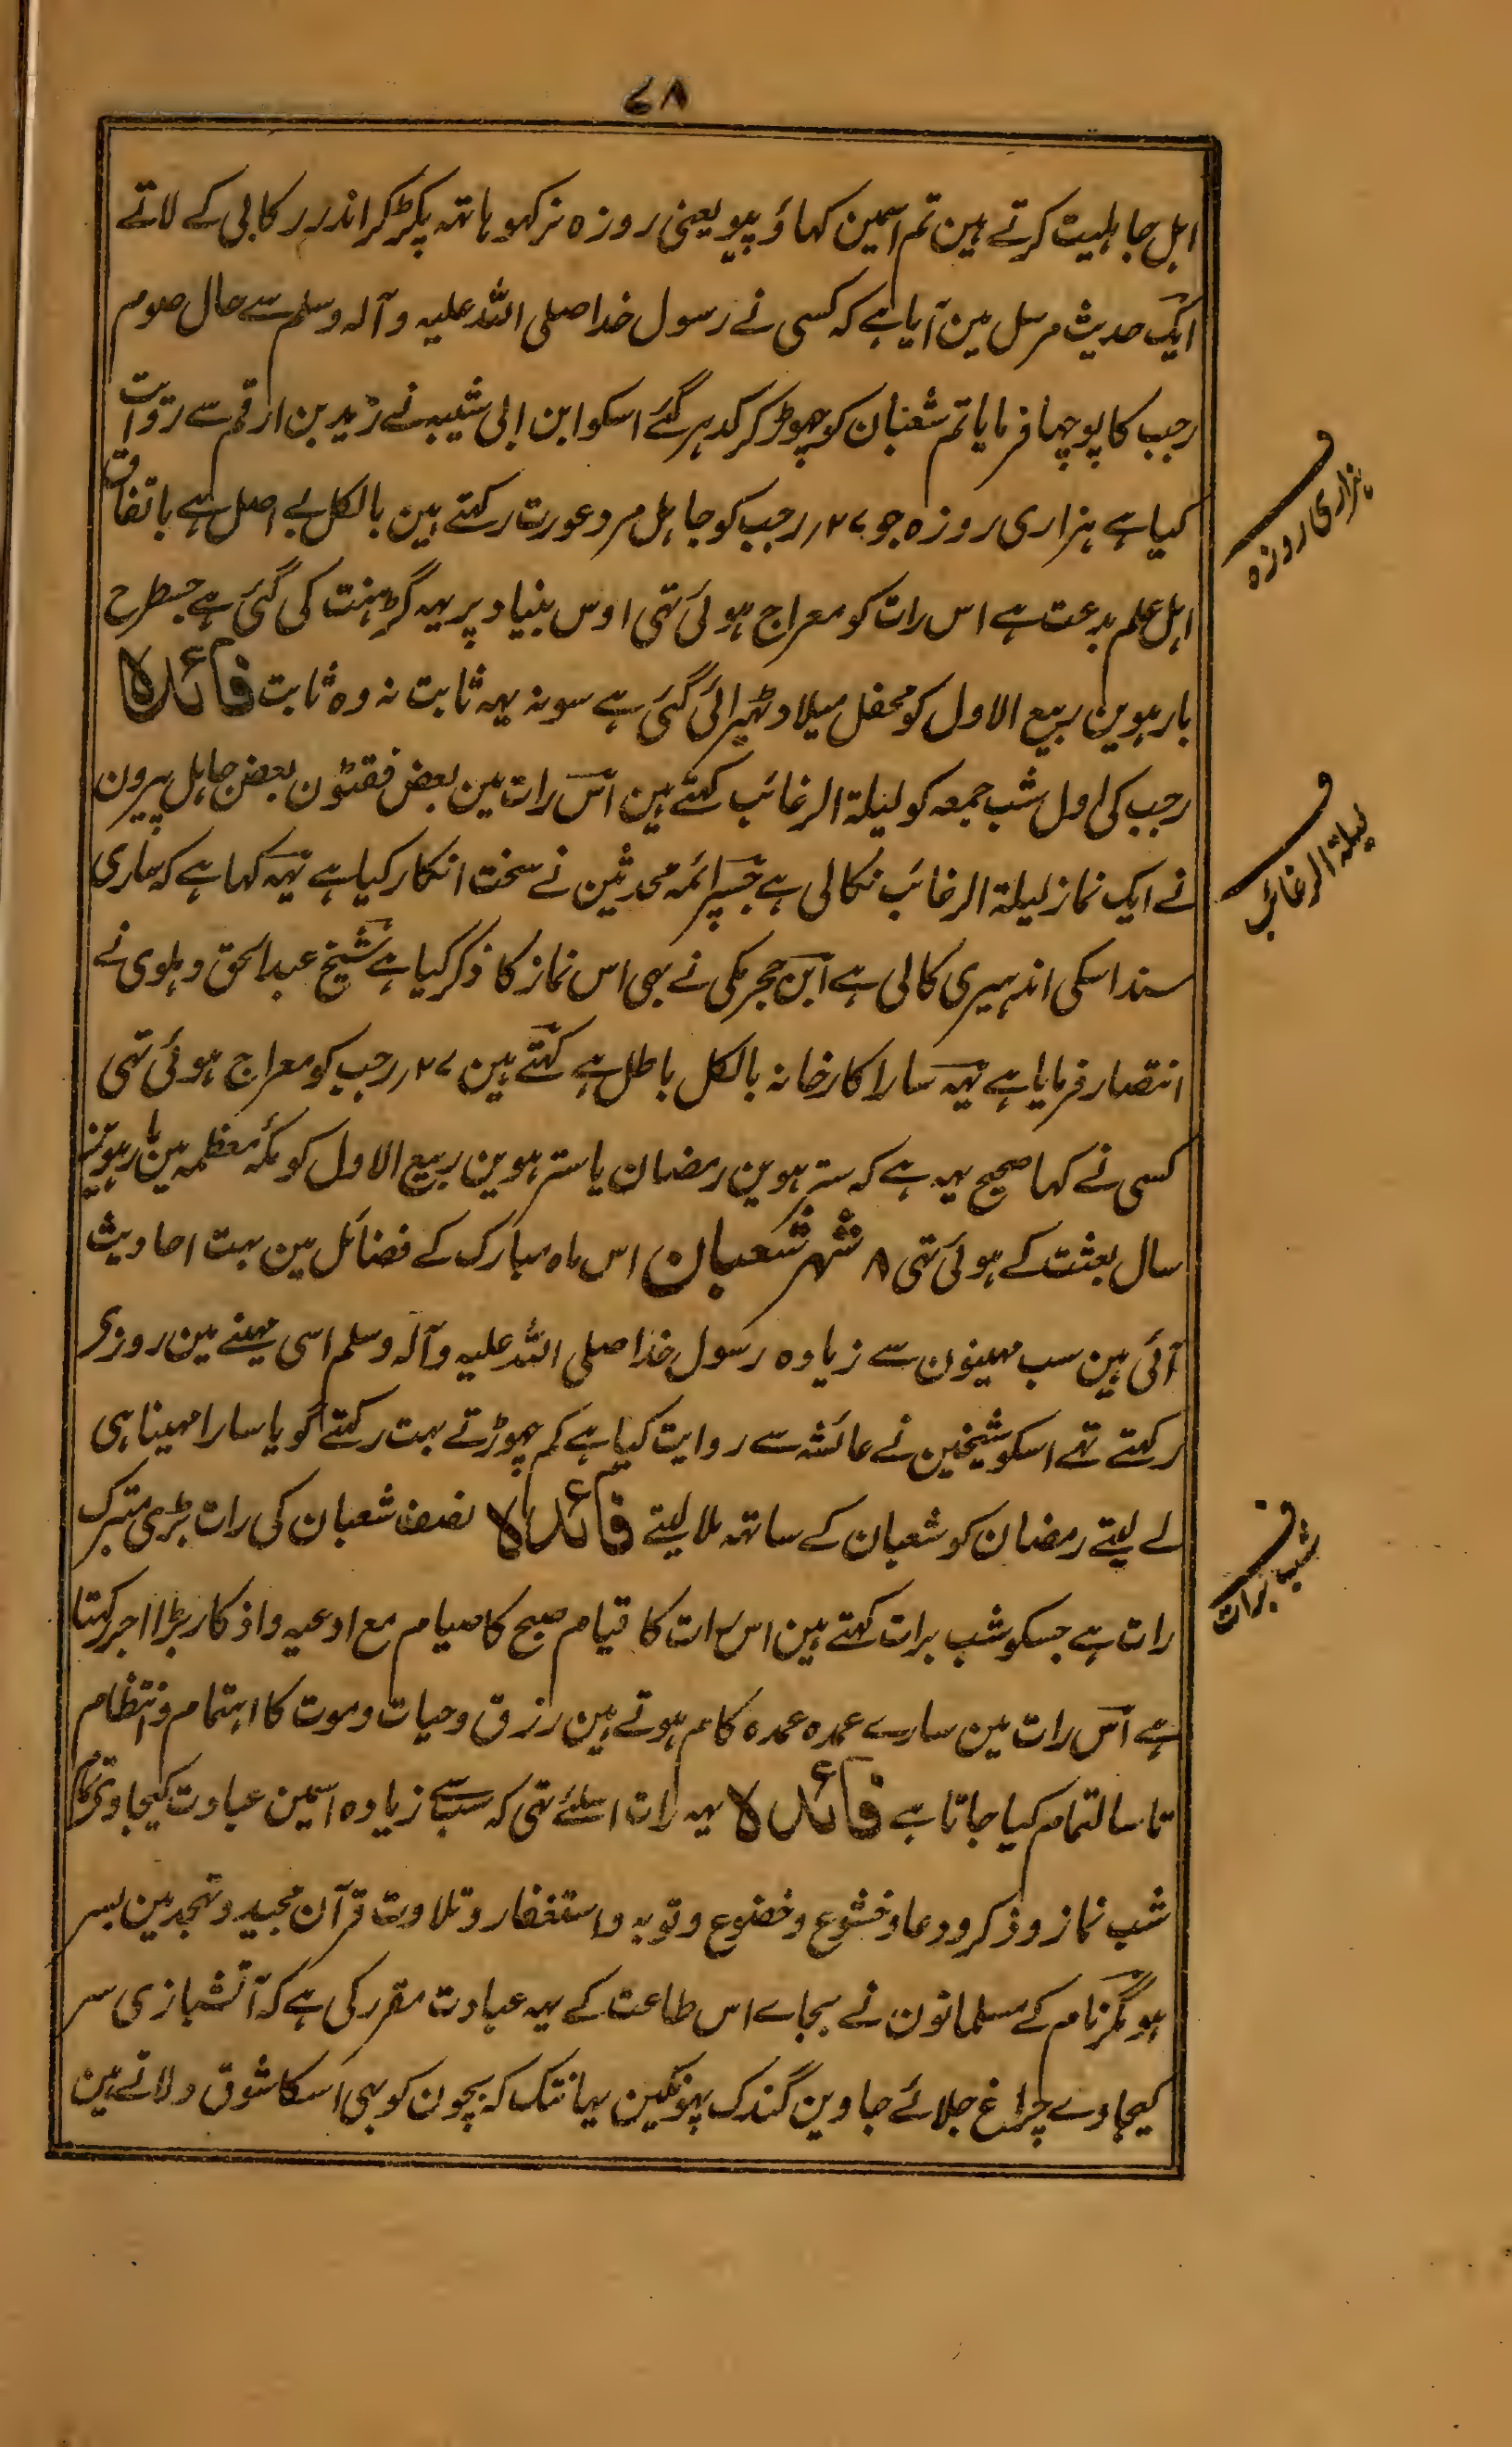 ۷۸
اہل جاہلیت کرتے ہین تم اسمین کہاؤ پیو یعنی روزہ نرکہو ہاتہ پکڑ کر اندر رکابی کے لاتے
ایک حدیث مرسل مین آیا ہے کہ کسی نے رسول خدا صلی اللہ علیہ وآلہ وسلم سے حال صوم
رجب کا پوچہا فرمایا تم شعبان کو چہوڑ کر کدہر گئے اسکو ابن ابی شیبہ نے زید بن ارقم سے روایت
کیا ہے ہزاری روزہ جو ۲۷؍ رجب کو جاہل مرد عورت رکہتے ہین بالکل بے اصل ہے باتفاق
اہل علم بدعت ہے اس رات کو معراج ہوئی تہی اوس بنیاد پر یہہ گڑہنت کی گئی ہے جسطرح
بارہوین ربیع الاول کو محفل میلاد ٹہیرائی گئی ہے سو نہ یہہ ثابت نہ وہ ثابت فائدہ
رجب کی اول شب جمعہ کو لیلۃ الرغائب کہتے ہین اس رات مین بعض فقیرون بعض جاہل پیرون
نے ایک نماز لیلۃ الرغائب نکالی ہے جسپر ائمہ محدثین نے سخت انکار کیا ہے یہہ کہا ہے کہ ساری
سند اسکی اندہیری کالی ہے ابن حجر مکی نے بہی اس نماز کا ذکر کیا ہے شیخ عبدالحق دہلوی نے
انتصار فرمایا ہے یہہ سارا کارخانہ بالکل باطل ہے کہتے ہین ۲۷؍ رجب کو معراج ہوئی تہی
کسی نے کہا صحیح یہہ ہے کہ سترہوین رمضان یا سترہوین ربیع الاول کو مکۂ معظمہ مین بارہوین
سال بعثت کے ہوئی تہی ۸ شہر شعبان اس ماہ مبارک کے فضائل مین بہت احادیث
آئی ہین سب مہینون سے زیادہ رسول خدا صلی اللہ علیہ وآلہ وسلم اسی مہینے مین روزی
رکہتے تہے اسکو شیخین نے عائشہ سے روایت کیا ہے کم چہوڑتے بہت رکہتے گویا سارا مہینا ہی
لے لیتے رمضان کو شعبان کے ساتہہ ملا لیتے فائدہ نصف شعبان کی رات بڑی متبرک
رات ہے جسکو شب برات کہتے ہین اس رات کا قیام صبح کا صیام مع ادعیہ واذکار بڑا اجر رکہتا
ہے اس رات مین سارے عمدہ عمدہ کام ہوتے ہین رزق وحیات وموت کا اہتمام وانتظام
تا سالتمام کیا جاتا ہے فائدہ یہہ رات اسلئے تہی کہ سب سے زیادہ اسمین عبادت کیجاوی تمام
شب نماز وذکر ودعا وخشوع وخضوع وتوبہ واستغفار وتلاوت قرآن مجید وتہجد مین بسر
ہو مگر نام کے مسلمانون نے بجاے اس طاعت کے یہہ عبادت مقرر کی ہے کہ آتشبازی سر
کیجاوے چراغ جلائے جاوین گندک پہونکین یہانتک کہ بچون کو بہی اسکا شوق دلاتے ہین
ف
ہزاری روزہ
ف
لیلۃ الرغائب
ف
شب برات